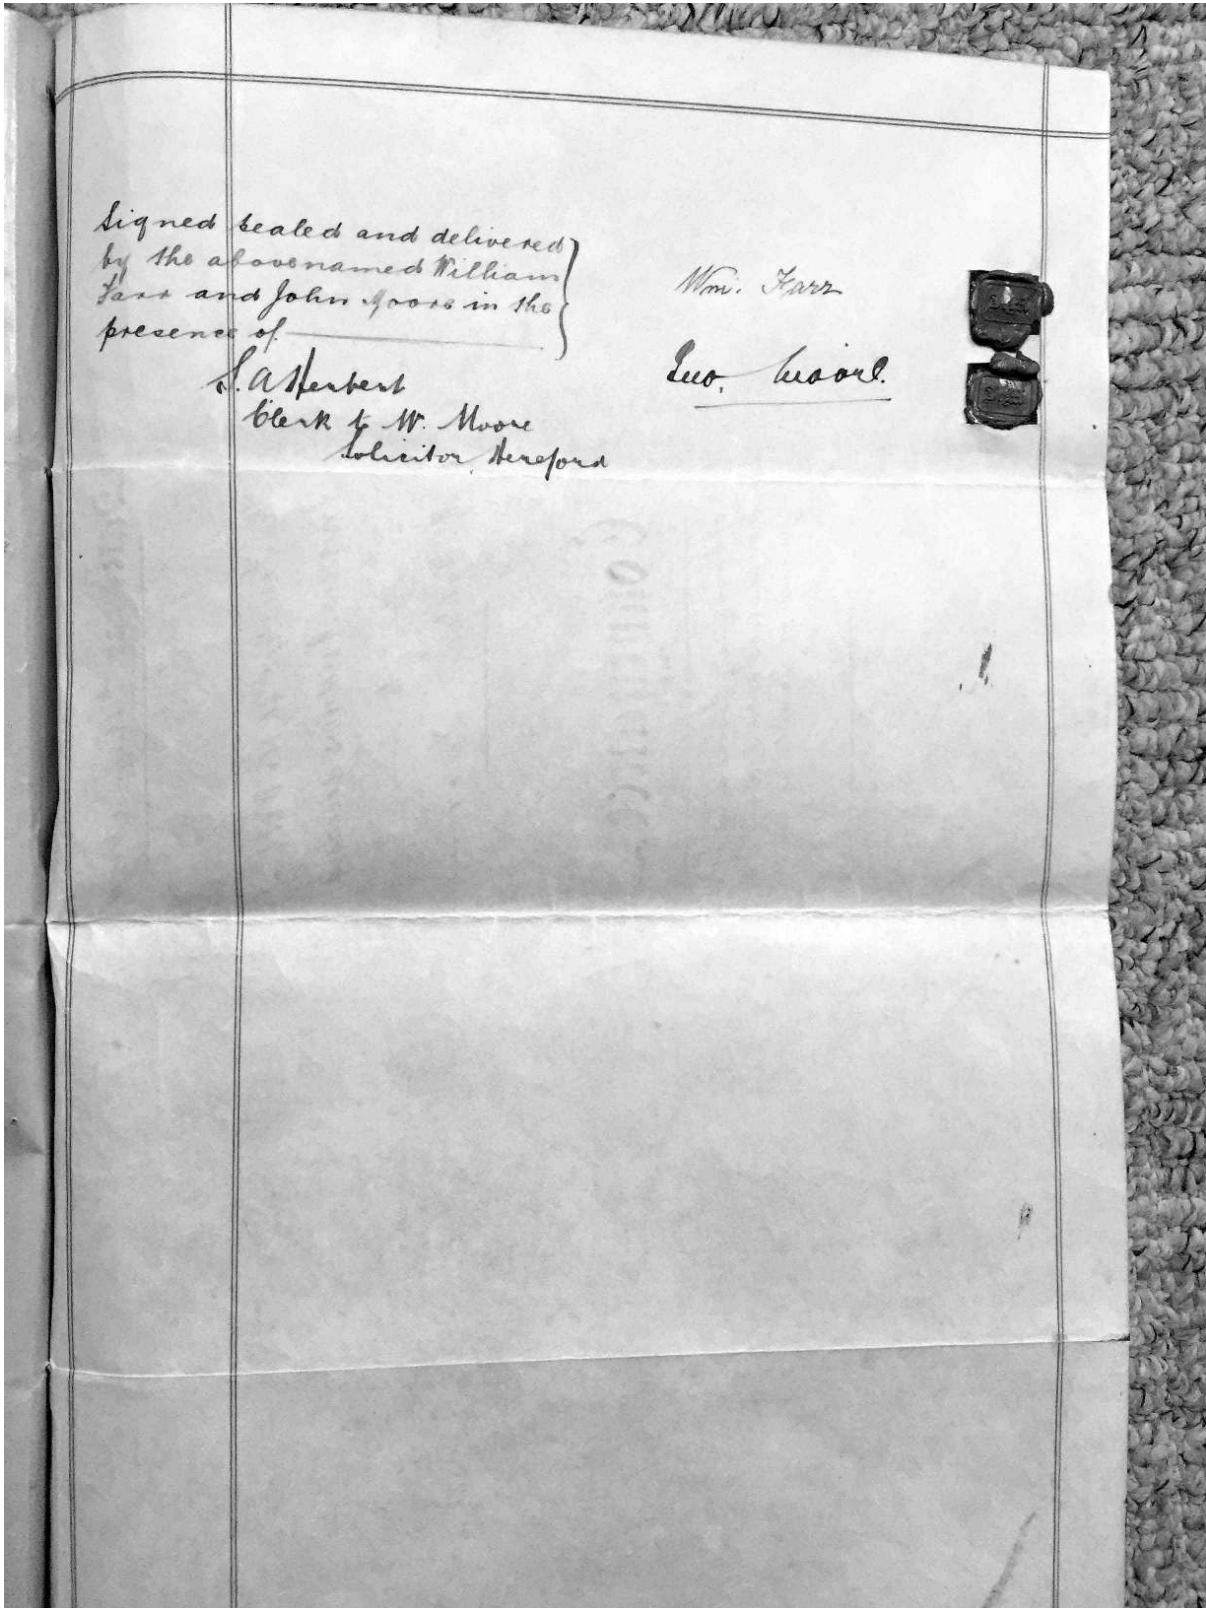 Signed sealed and delivered
by the abovenamed William
Farr and John Moore in the
presence of
S. A Herbert
Clerk to W. Moore
Solicitor, Hereford
Wm. Farr
Jno. Moore.